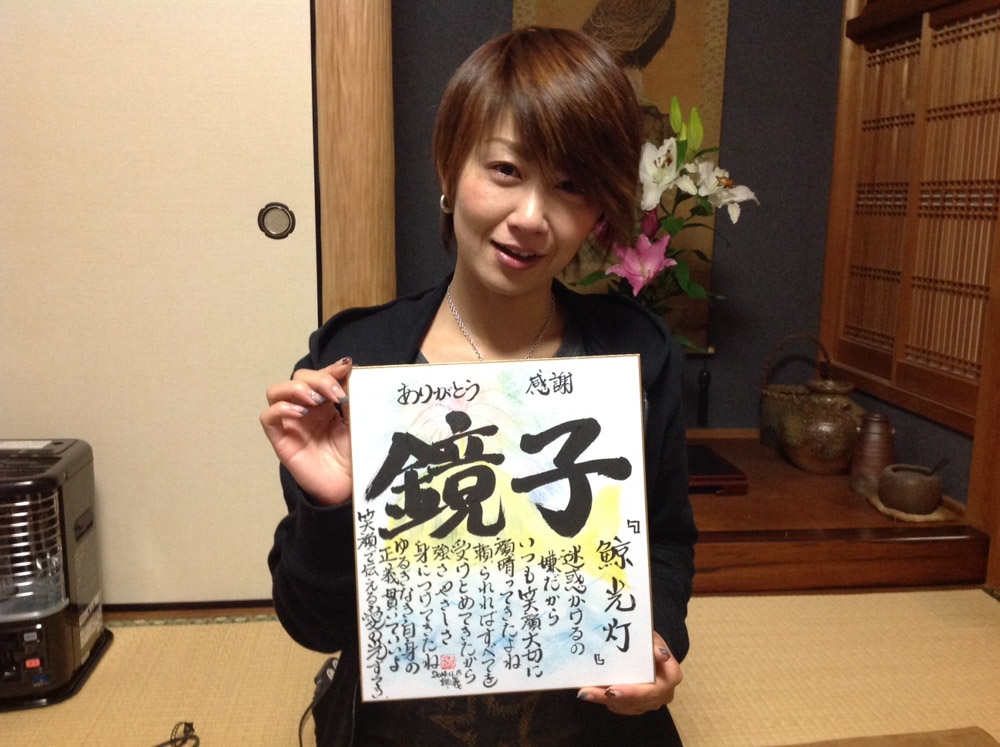 ありがとう 感謝
鏡子
『鯨光灯』
迷惑かけるの
嫌だから
いつも笑顔大切に
顔晴ってきたよね
頼られればすべてを
受けとめてきたから
強さやさしさ
身につけてきたね
ゆるぎなき自身の
正義貫いていいよ
笑顔で伝える愛の光すてき